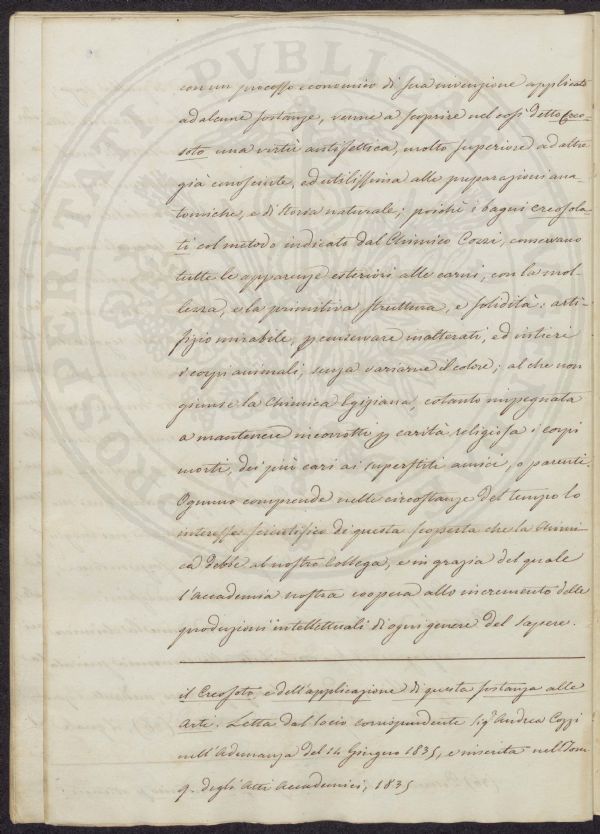 con un processo economico di sua invenzione applicato
ad alcune sostanze, venne a scoprire nel così detto Creo-
soto una virtù antisettica, molto superiore ad altre
già conosciute, ed utilissima alle preparazioni ana-
tomiche, e di Storia naturale; poichè i bagni creosota-
ti col metodo indicato dal Chimico Cozzi, conservano
tutte le apparenze esteriori alle carni, con la mol-
lezza, e la primitiva struttura, e solidità: arti-
fizio mirabile, p conservare inalterati, ed intieri
i corpi animali, senza variarne il colore; al che non
giunse la Chimica Egiziana, cotanto impegnata
a mantenere incorrotti p carità religiosa i corpi
morti, dei più cari ai superstiti amici, o parenti.
Ognuno comprende nelle circostanze del tempo lo
interesse scientifico di questa scoperta che la Chimi-
ca debbe al nostro Collega, e in grazia del quale
l'Accademia nostra coopera allo incremento delle
produzioni intellettuali di ogni genere del sapere.
il Creosoto, e dell'applicazione di questa sostanza alle
Arti. Letta dal socio corrispondente Sig.r Andrea Cozzi
nell'Adunanza del 14 Giugno 1835, e inserita nel Tom.
9. degli Atti Accademici, 1835
PROSPERITATI PVBLICAE